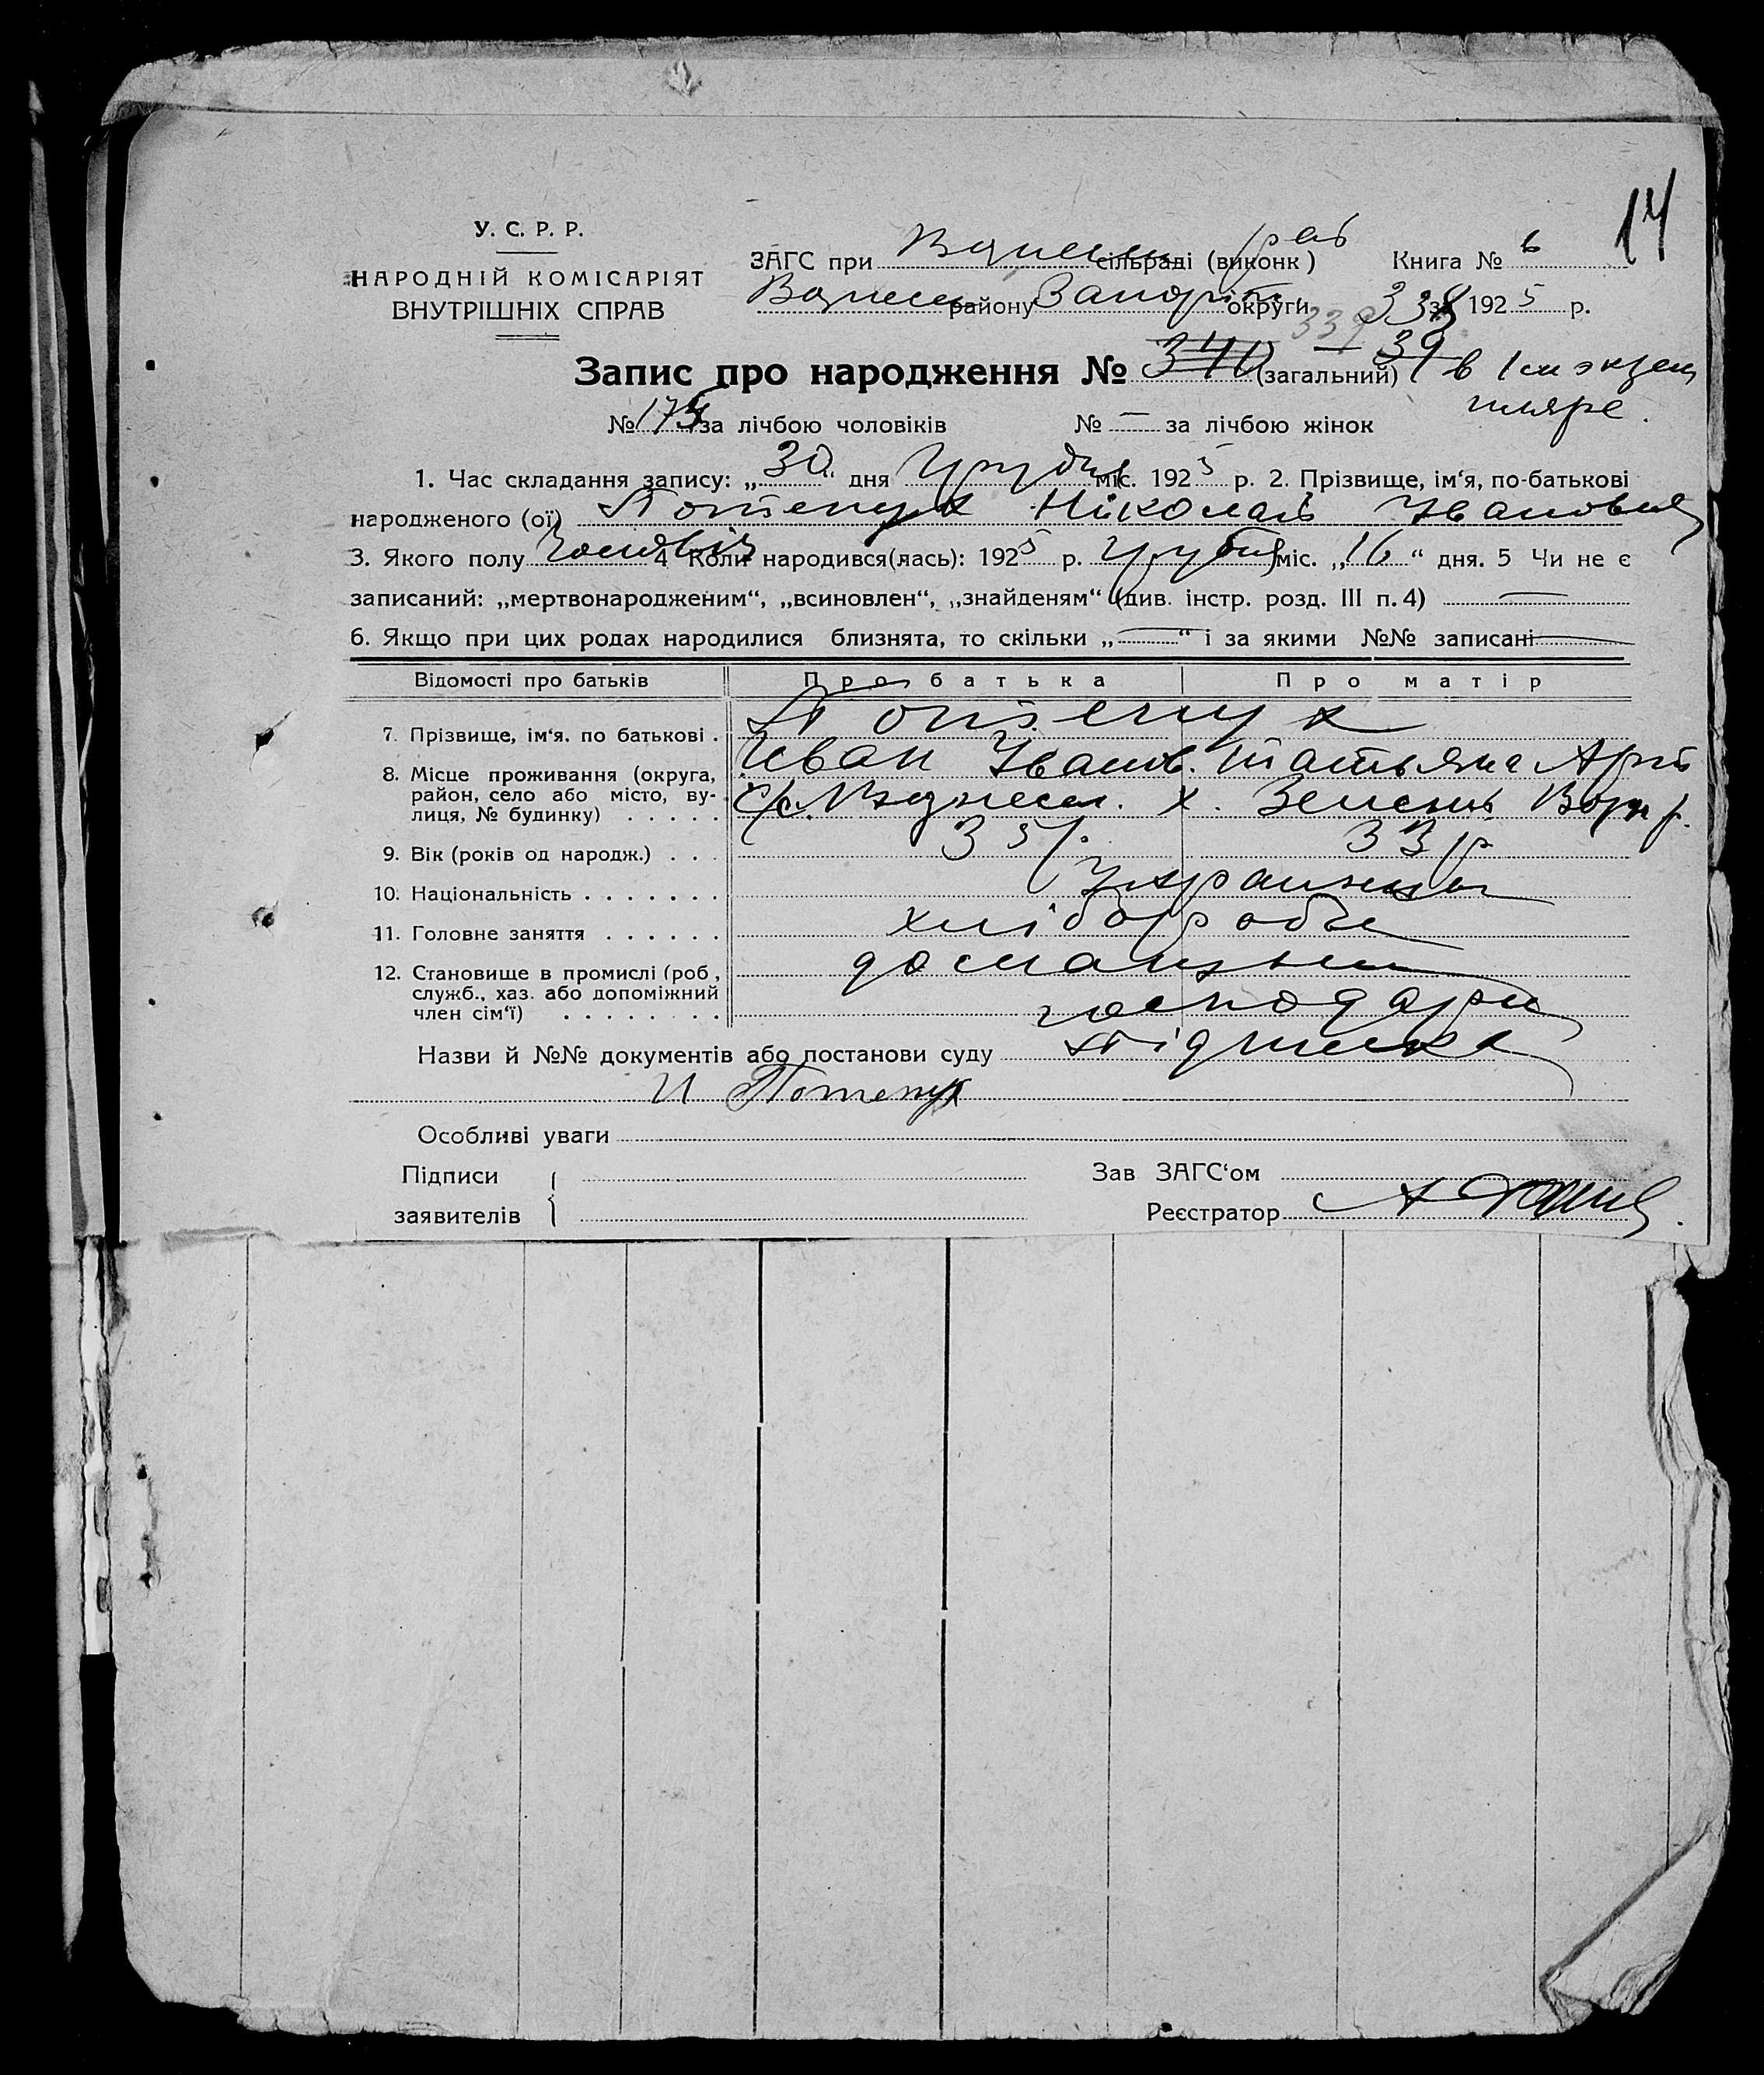 14
У. С. Р. Р.
НАРОДНІЙ КОМІСАРІЯТ
ВНУТРІШНІХ СПРАВ
ЗАГС при Вознесен сільраді (виконк) рай Книга № 6
Вознесен району Запоріж округи 338 за 1925 р.
339
Запис про народження № 340 (загальний) 39 в 1 см экзем
пляре.
№ 175 за лічбою чоловіків № — за лічбою жінок
1. Час складання запису: „30“ дня Грудня міс. 1925 р. 2. Прізвище, ім‘я, по-батькові
народженого (ої) Потепух Николай Іванович
3. Якого полу Чоловіч 4 Коли народився(лась): 1925 р. Грудня міс. „16“ дня. 5 Чи не є
записаний: „мертвонародженим“, „всиновлен“, „знайденям“ (див. інстр. розд. III п. 4) —
6. Якщо при цих родах народилися близнята, то скільки „—“ і за якими №№ записані —
Відомості про батьків Про батька Про матір
7. Прізвище, ім‘я. по батькові . Потепух
Иван Іванов. Татьяна
8. Місце проживання (округа,
район, село або місто, ву-
лиця, № будинку) . . . . . с/с. Вознесен. х. Зелений
9. Вік (років од народж.) . . . 35 р. 33 р
10. Національність . . . . . . . Українці
11. Головне заняття . . . . . . хлібороби
12. Становище в промислі (роб,
служб., хаз. або допоміжний
член сім‘ї) . . . . . . . . господарі
Назви й №№ документів або постанови суду Підписка
И Потепух
Особливі уваги
Підписи
заявителів
Зав ЗАГС‘ом
Реєстратор